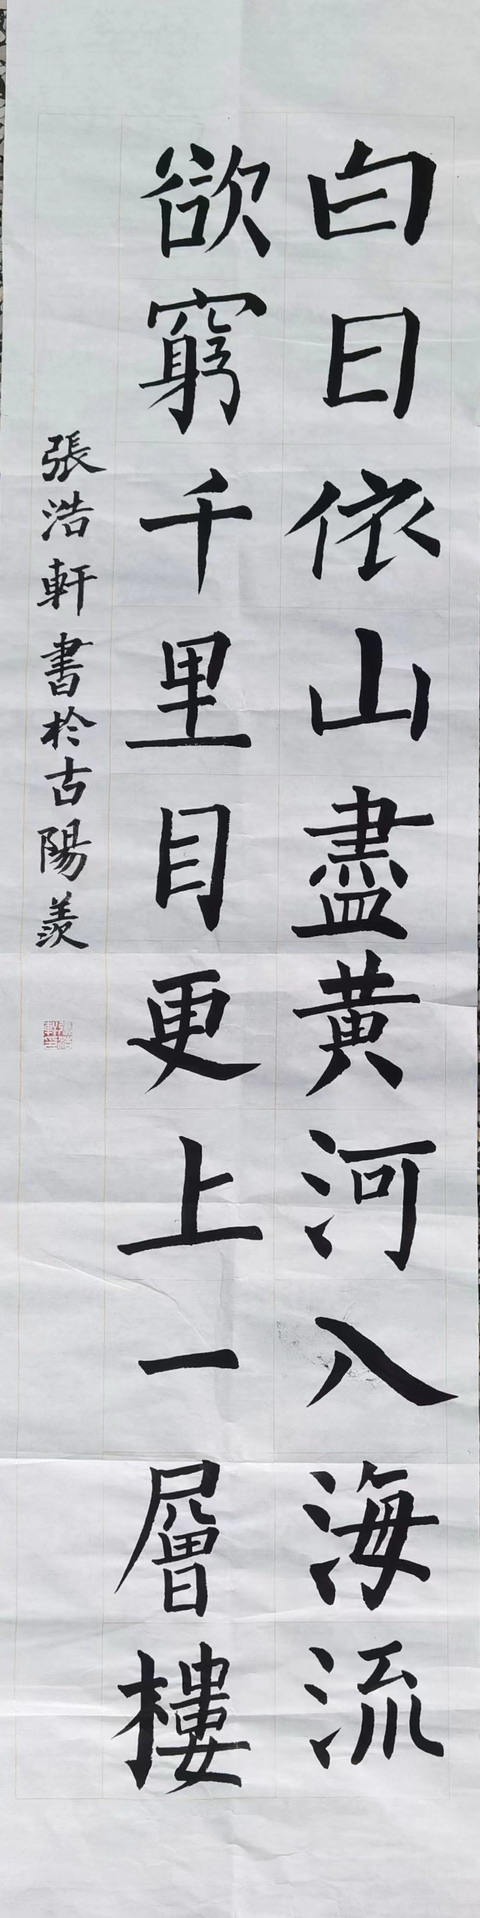 白日依山盡黃河入海流
欲窮千里目更上一層樓
張浩軒書於古陽羨